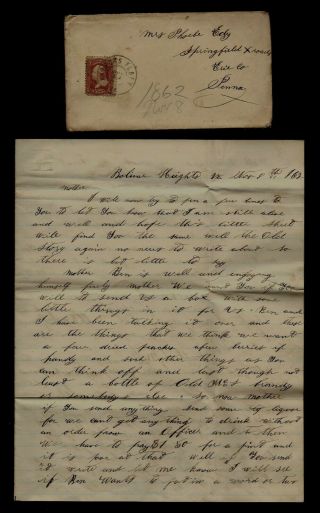 Mrs Phoebe Eby
Springfield X roads
Erie Co
Penna
1862
Nov 8
Heights Va Nov 8th 186
mother
I will now try to pen a few lines to
You to let You know that I am still alive
and well and hope this little Sheet
will find You the same well the Old
Story again no need to write about so
there is but little to say
mother Ben is well and enjoying
himself finely mother We want You if You
will to send us a box with some
little things in it for us. Ben and
I have been talking it over and these
are the things that we think we want
a few dried peaches a few berries if
handy and such other things as You
can think off and last though not
least a bottle of Old brandy
or somebody else. So now mother
if You send any thing send some by liquor
for we cant get any thing to drink without
an order from an Officer and so then
We have to pay $1.50 for a pint and
it is poor at that well if You send
it write and let me know I will see
if Ben Wants to put in a word or two